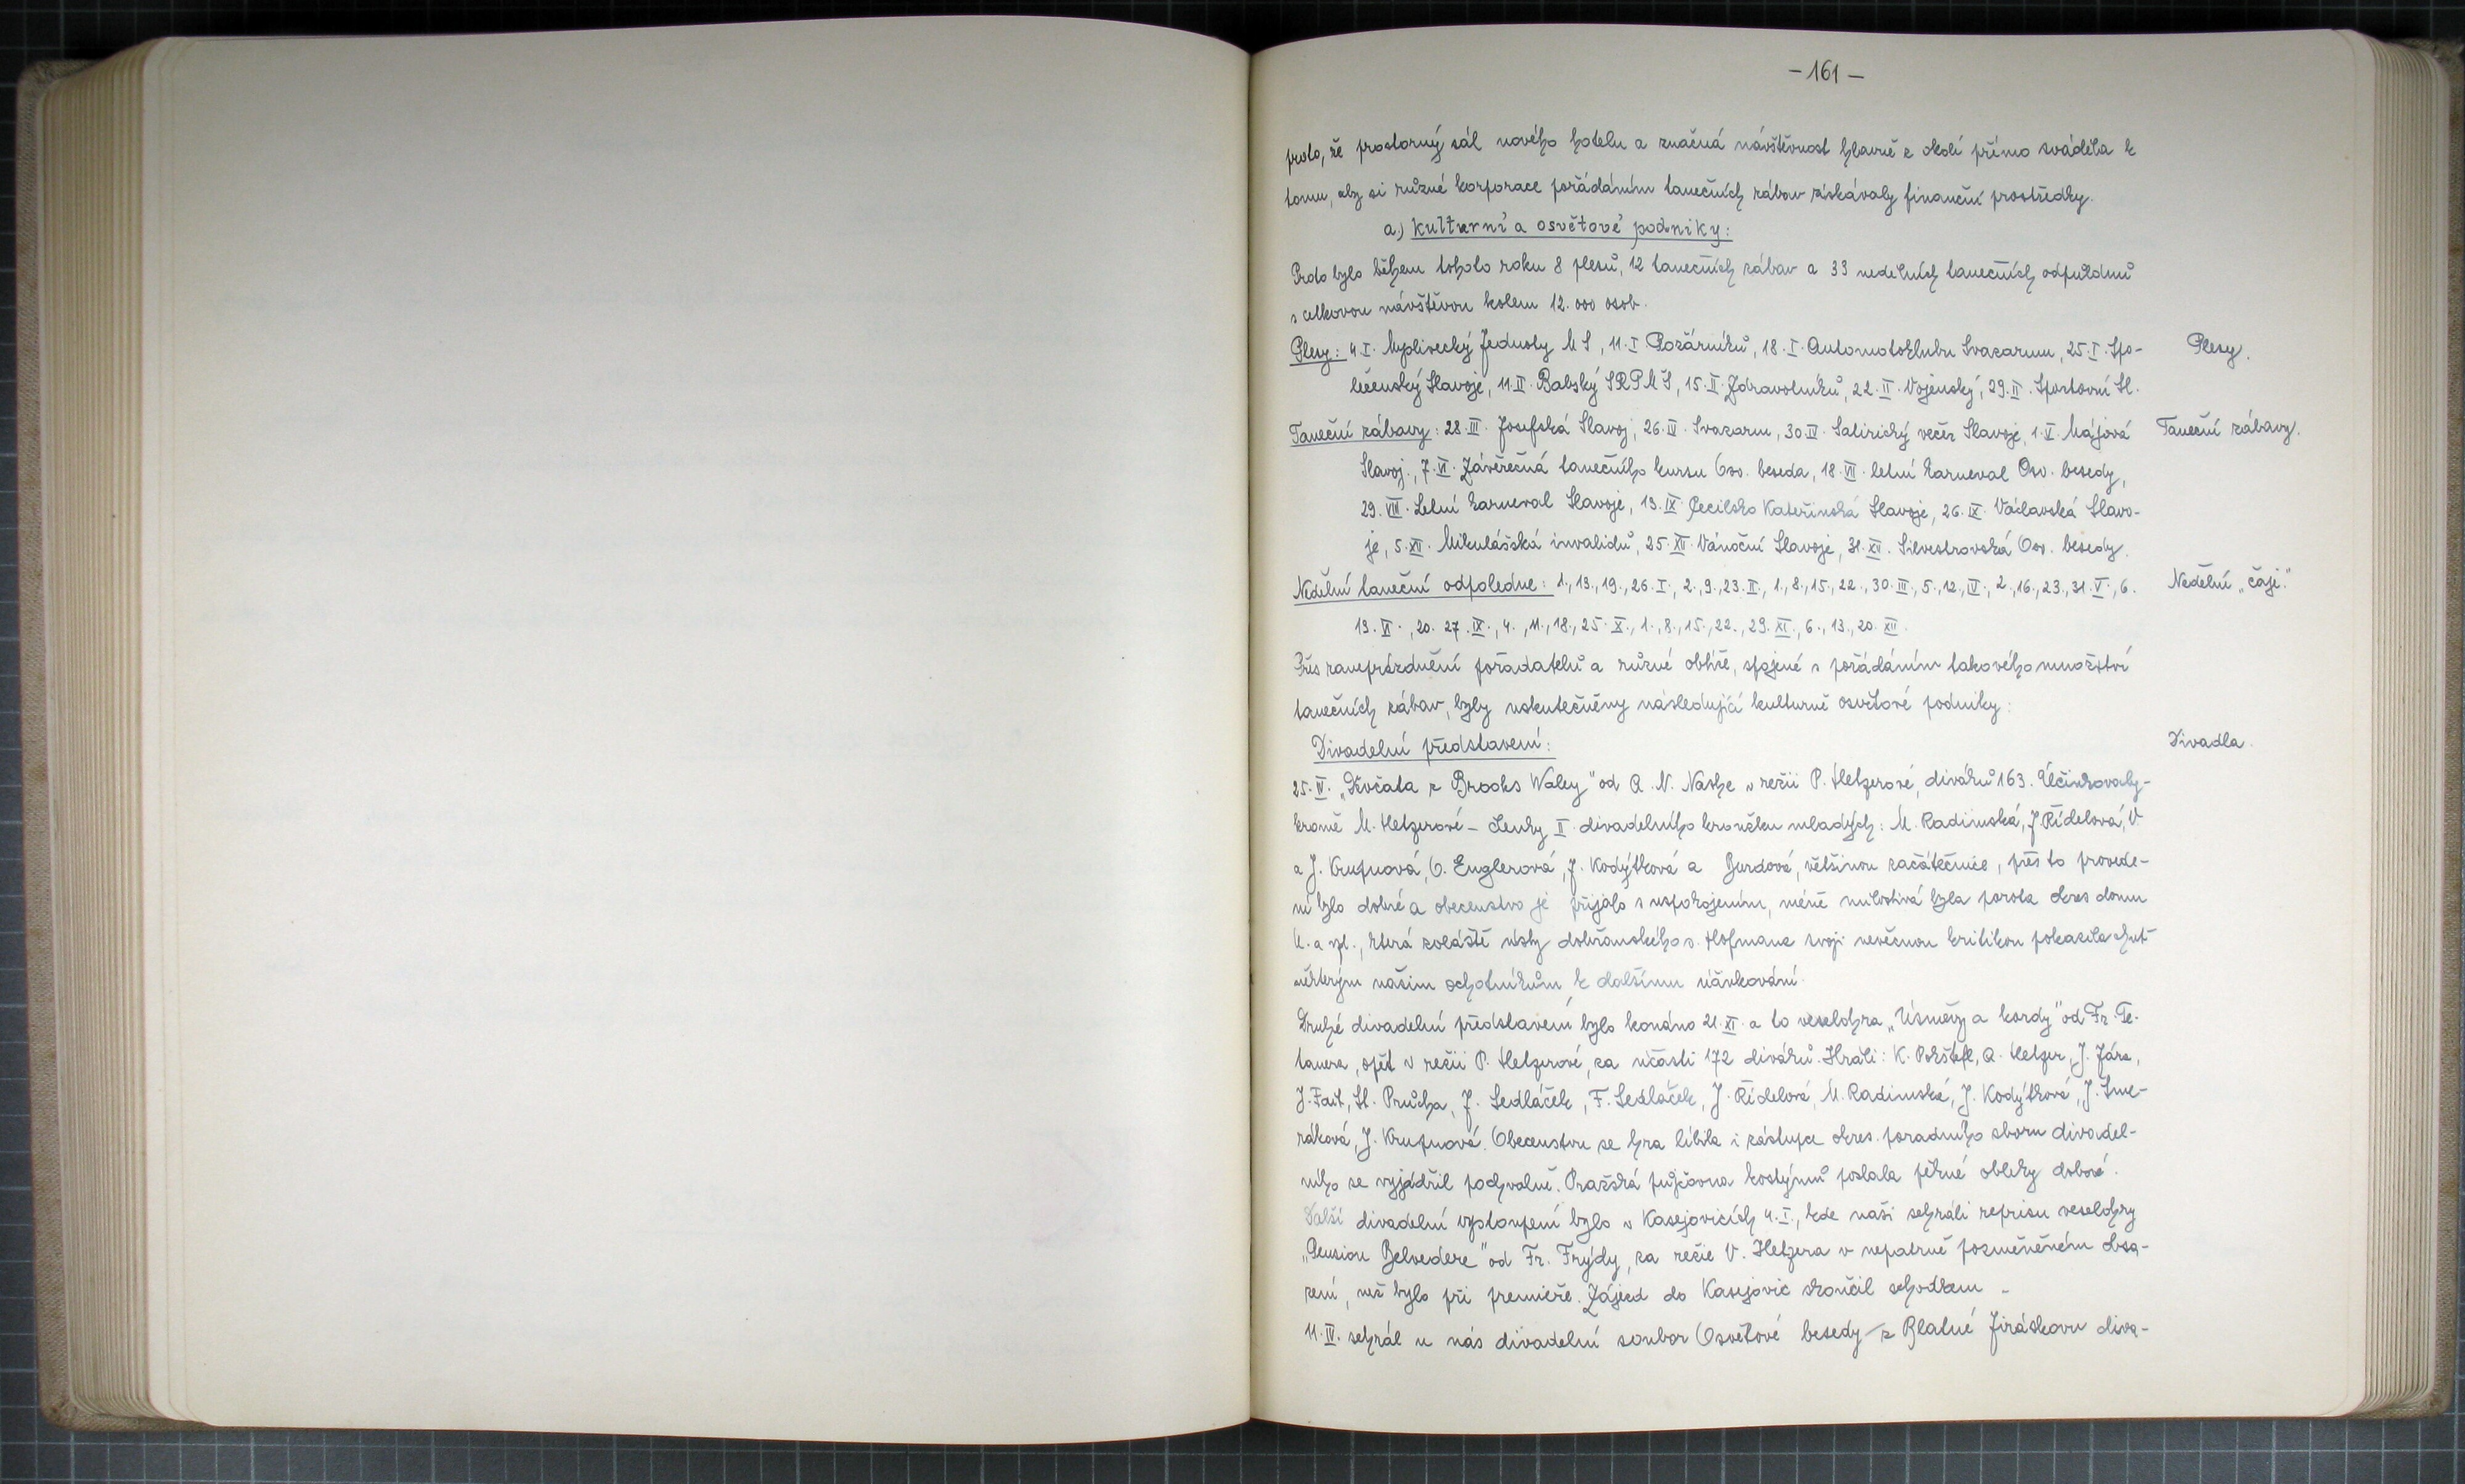 - 161 -
proto, že prostorný sál nového hotelu a značná návštěvnost hlavně z okolí přímo sváděla k
tomu, aby si různé korporace pořádáním tanečních zábav získávaly finanční prostředky.
a.) Kulturní a osvětové podniky:
Proto bylo během tohoto roku 8 plesů, 12 tanečních zábav a 33 nedelních tanečních odpoldnů
s celkovou návštěvou kolem 12.000 osob.
Plesy: 4.I. Myslivecký Jednoty MS, 11.I Požárníků, 18.I. Automotoklubu Svazarmu, 25.I. Spo-
Plesy.
lečenský Slavoje, 11.II. Babský SRPMŠ, 15.II. Zdravotníků, 22.II. Vojenský, 29.II. Sportovní Sl.
Taneční zábavy: 28.III. Josefská Slavoj, 26.IV. Svazarm, 30.IV. Satirický večer Slavoje, 1.V. Májová
Taneční zábavy.
Slavoj., 7.VI. Závěrečná tanečního kursu Osv. beseda, 18.VII. letní karneval Osv. besedy,
29.VIII. Letní karneval Slavoje, 13.IX. Cecilsko Kateřinská Slavoje, 26.IX. Václavská Slavo-
je, 5.XII. Mikulášská invalidů, 25.XII. Vánoční Slavoje, 31.XII. Silvestrovská Osv. besedy.
Nedělní taneční odpoledne: 1., 13., 19., 26.I., 2., 9., 23.II., 1., 8., 15., 22., 30.III., 5., 12., IV., 2., 16., 23., 31.V., 6.
Nedělní „čaje."
13.VI., 20. 27.IX., 4., 11., 18., 25.X., 1., 8., 15., 22., 29.XI., 6., 13., 20.XII.
Přes zaneprázdnění pořadatelů a různé obtíže, spojené s pořádáním takového množství
tanečních zábav, byly uskutečněny následující kulturně osvětové podniky:
Divadelní představení:
Divadla.
25.IV. „Děvčata z Brooks Waley" od A. N. Nashe v režii P. Hetzerové, diváků 163. Účinkovaly-
kromě M. Hetzerové - členky II. divadelního kroužku mladých: M. Radimská, J. Řídelová, V.
a J. Krupnová, O. Englerová, J. Kodýtková a Burdová, většinou začátečnice, přes to provede-
ní bylo dobré a obecenstvo je přijalo s uspokojením, méně milostivá byla porota okres domu
k. a vzd., která zvláště ústy dobřanského s. Hofmana svoji nevěcnou kritikou pokazila chuť
některým našim ochotníkům k dalšímu účinkování.
Druhé divadelní představení bylo konáno 21.XI. a to veselohra „Úsměvy a kordy" od Fr. Te-
tauera, opět v režii P. Hetzerové, za účasti 172 diváků. Hráli: K. Pokštefl, A. Hetzer, J. Jára,
J. Fait, St. Průcha, J. Sedláček, F. Sedláček, J. Řídelová, M. Radimská, J. Kodýtková, J. Sme-
ráková, J. Krupnová. Obecenstvu se hra líbila i zástupce okres. poradního sboru divadel-
ního se vyjádřil pochvalně. Pražská půjčovna kostýmů poslala pěkné obleky dobové.
Další divadelní vystoupení bylo v Kasejovicích 4.I., kde naši sehráli reprisu veselohry
„Pension Belvedere" od Fr. Frýdy, za režie V. Hetzera v nepatrně pozměněném obsa-
zení, než bylo při premiéře. Zájezd do Kasejovic skončil schodkem -
11.IV. sehrál u nás divadelní soubor Osvětové besedy z Blatné Jiráskovu diva-